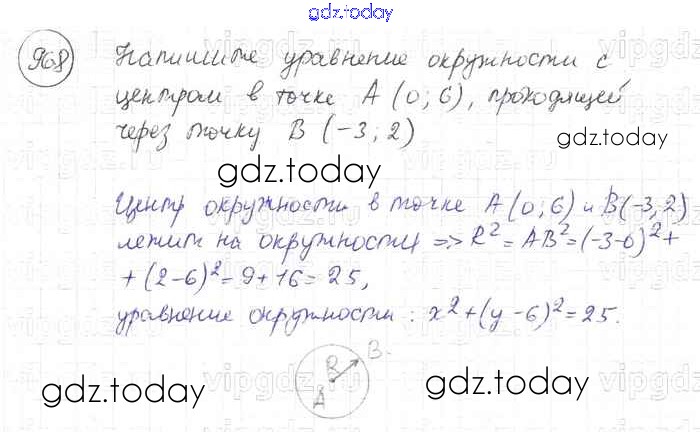 gdz.today
968 Напишите уравнение окружности с
центром в точке A (0; 6), проходящей
через точку B (-3; 2)
gdz.today
gdz.today
Центр окружности в точке A (0; 6) и B (-3, 2)
лежит на окружности => R² = AB² = (-3-0)² +
+ (2-6)² = 9 + 16 = 25,
уравнение окружности : x² + (y - 6)² = 25.
R B.
A
gdz.today
gdz.today